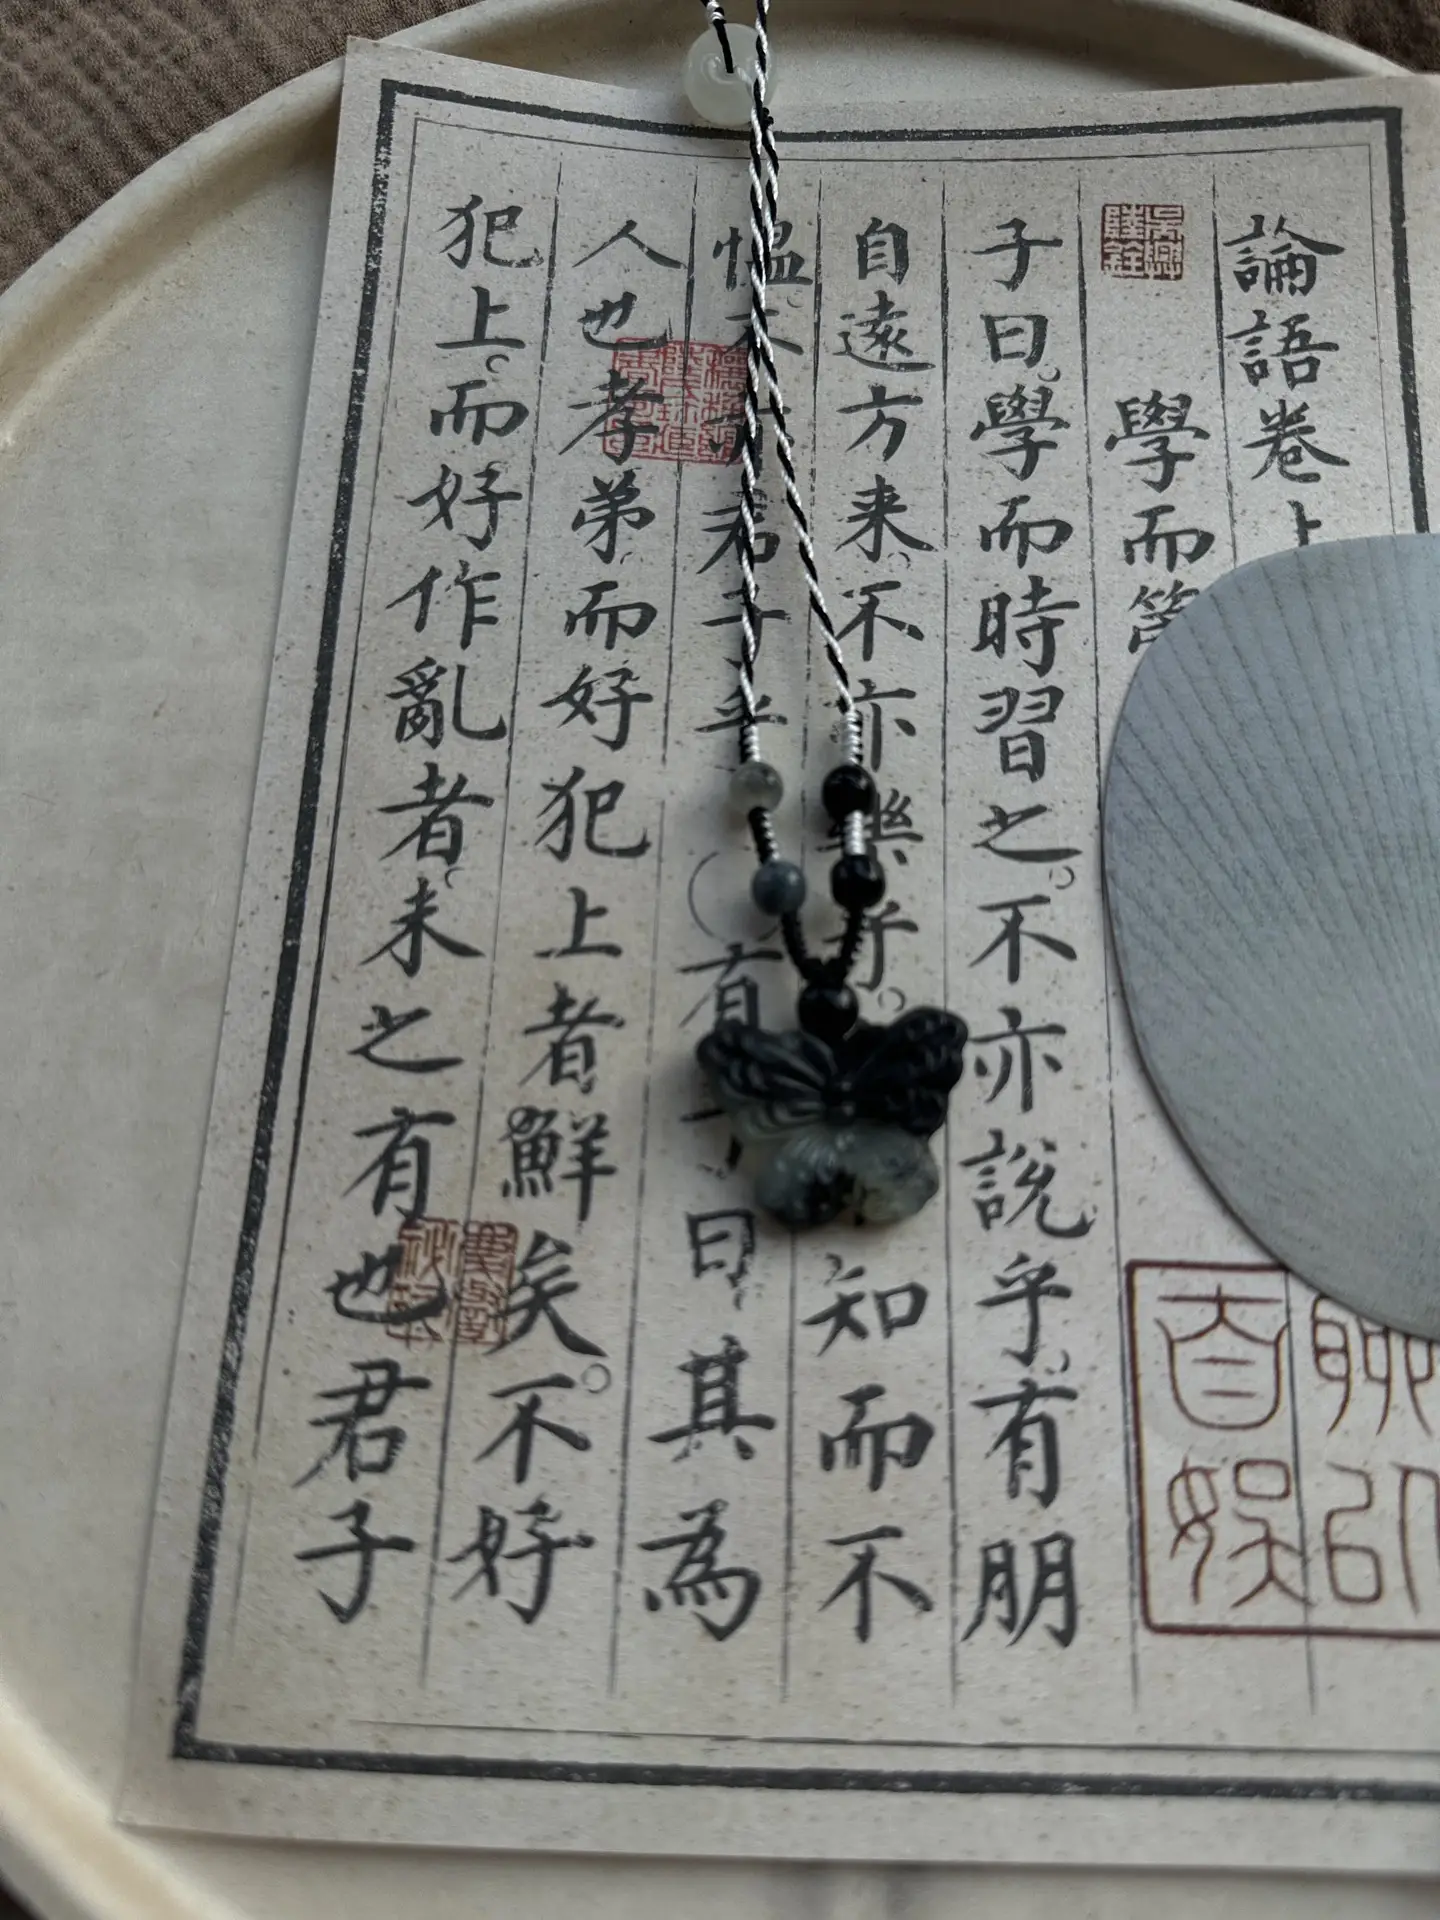 論語卷上
學而
子曰。學而時習之。不亦說乎。有朋
自遠方来。不亦樂乎。知而不
慍。不亦君子乎○有曰其為
人也孝弟而好犯上者鮮矣。不好
犯上。而好作亂者。未之有也君子
聊以
自娛